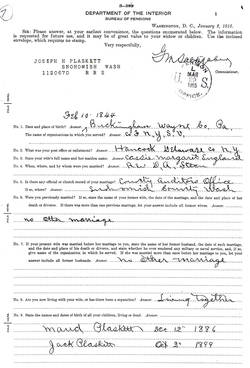 3-389
DEPARTMENT OF THE INTERIOR
BUREAU OF PENSIONS
WASHINGTON, D. C., January 2, 1915.
SIR: Please answer, at your earliest convenience, the questions enumerated below. The information
is requested for future use, and it may be of great value to your widow or children. Use the inclosed
envelope, which requires no stamp.
Very respectfully,
JOSEPH H PLASKETT
SNOHOMISH WASH
Commissioner.
Feb 10-1844
No. 1. Date and place of birth? Answer. Buckingham Wayne Co, Pa,
The name of organizations in which you served? Answer.
No. 2. What was your post office at enlistment? Answer. Hancock Delaware Co N.Y
No. 3. State your wife's full name and her maiden name. Answer. Cassie Margaret England
No. 4. When, where, and by whom were you married? Answer. Rev D.A.
No. 5. Is there any official or church record of your marriage? County Auditors Office
If so, where? Answer. Snohomish County Wash
No. 6. Were you previously married? If so, state the name of your former wife, the date of the marriage, and the date and place of her
death or divorce. If there was more than one previous marriage, let your answer include all former wives. Answer.
no other marriage
No. 7. If your present wife was married before her marriage to you, state the name of her former husband, the date of such marriage,
and the date and place of his death or divorce, and state whether he ever rendered any military or naval service, and, if so,
give name of the organization in which he served. If she was married more than once before her marriage to you, let your
answer include all former husbands. Answer. no other marriage
No. 8. Are you now living with your wife, or has there been a separation? Answer. Living together
No. 9. State the names and dates of birth of all your children, living or dead. Answer.
Maud Plaskett Dec 12th 1886
Jack Plaskett Oct 1899